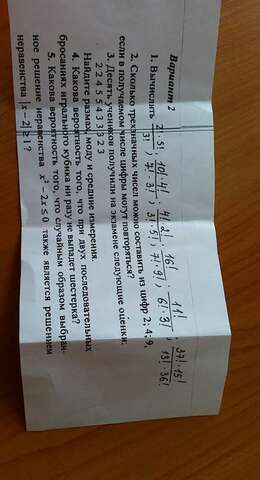 Вариант 2
1. Вычислить 2!·5!/3! ; 10!·4!/7!·3! ; 4!·2!/3!·5! ; 16!/7!·9! ; 11!/6!·3! ; 37!·15!/13!·36!
2. Сколько трехзначных чисел можно составить из цифр 2; 4; 9,
если в получаемом числе цифры могут повторяться?
3. Десять учеников получили на экзамене следующие оценки:
2 2 4 5 5 4 2 3 2 3
Найдите размах, моду и средние измерения.
4. Какова вероятность того, что при двух последовательных
бросаниях игрального кубика ни разу не выпадет шестерка?
5. Какова вероятность того, что случайным образом выбран-
ное решение неравенства x² − 2x ≤ 0, также является решением
неравенства |x − 2| ≥ 1?